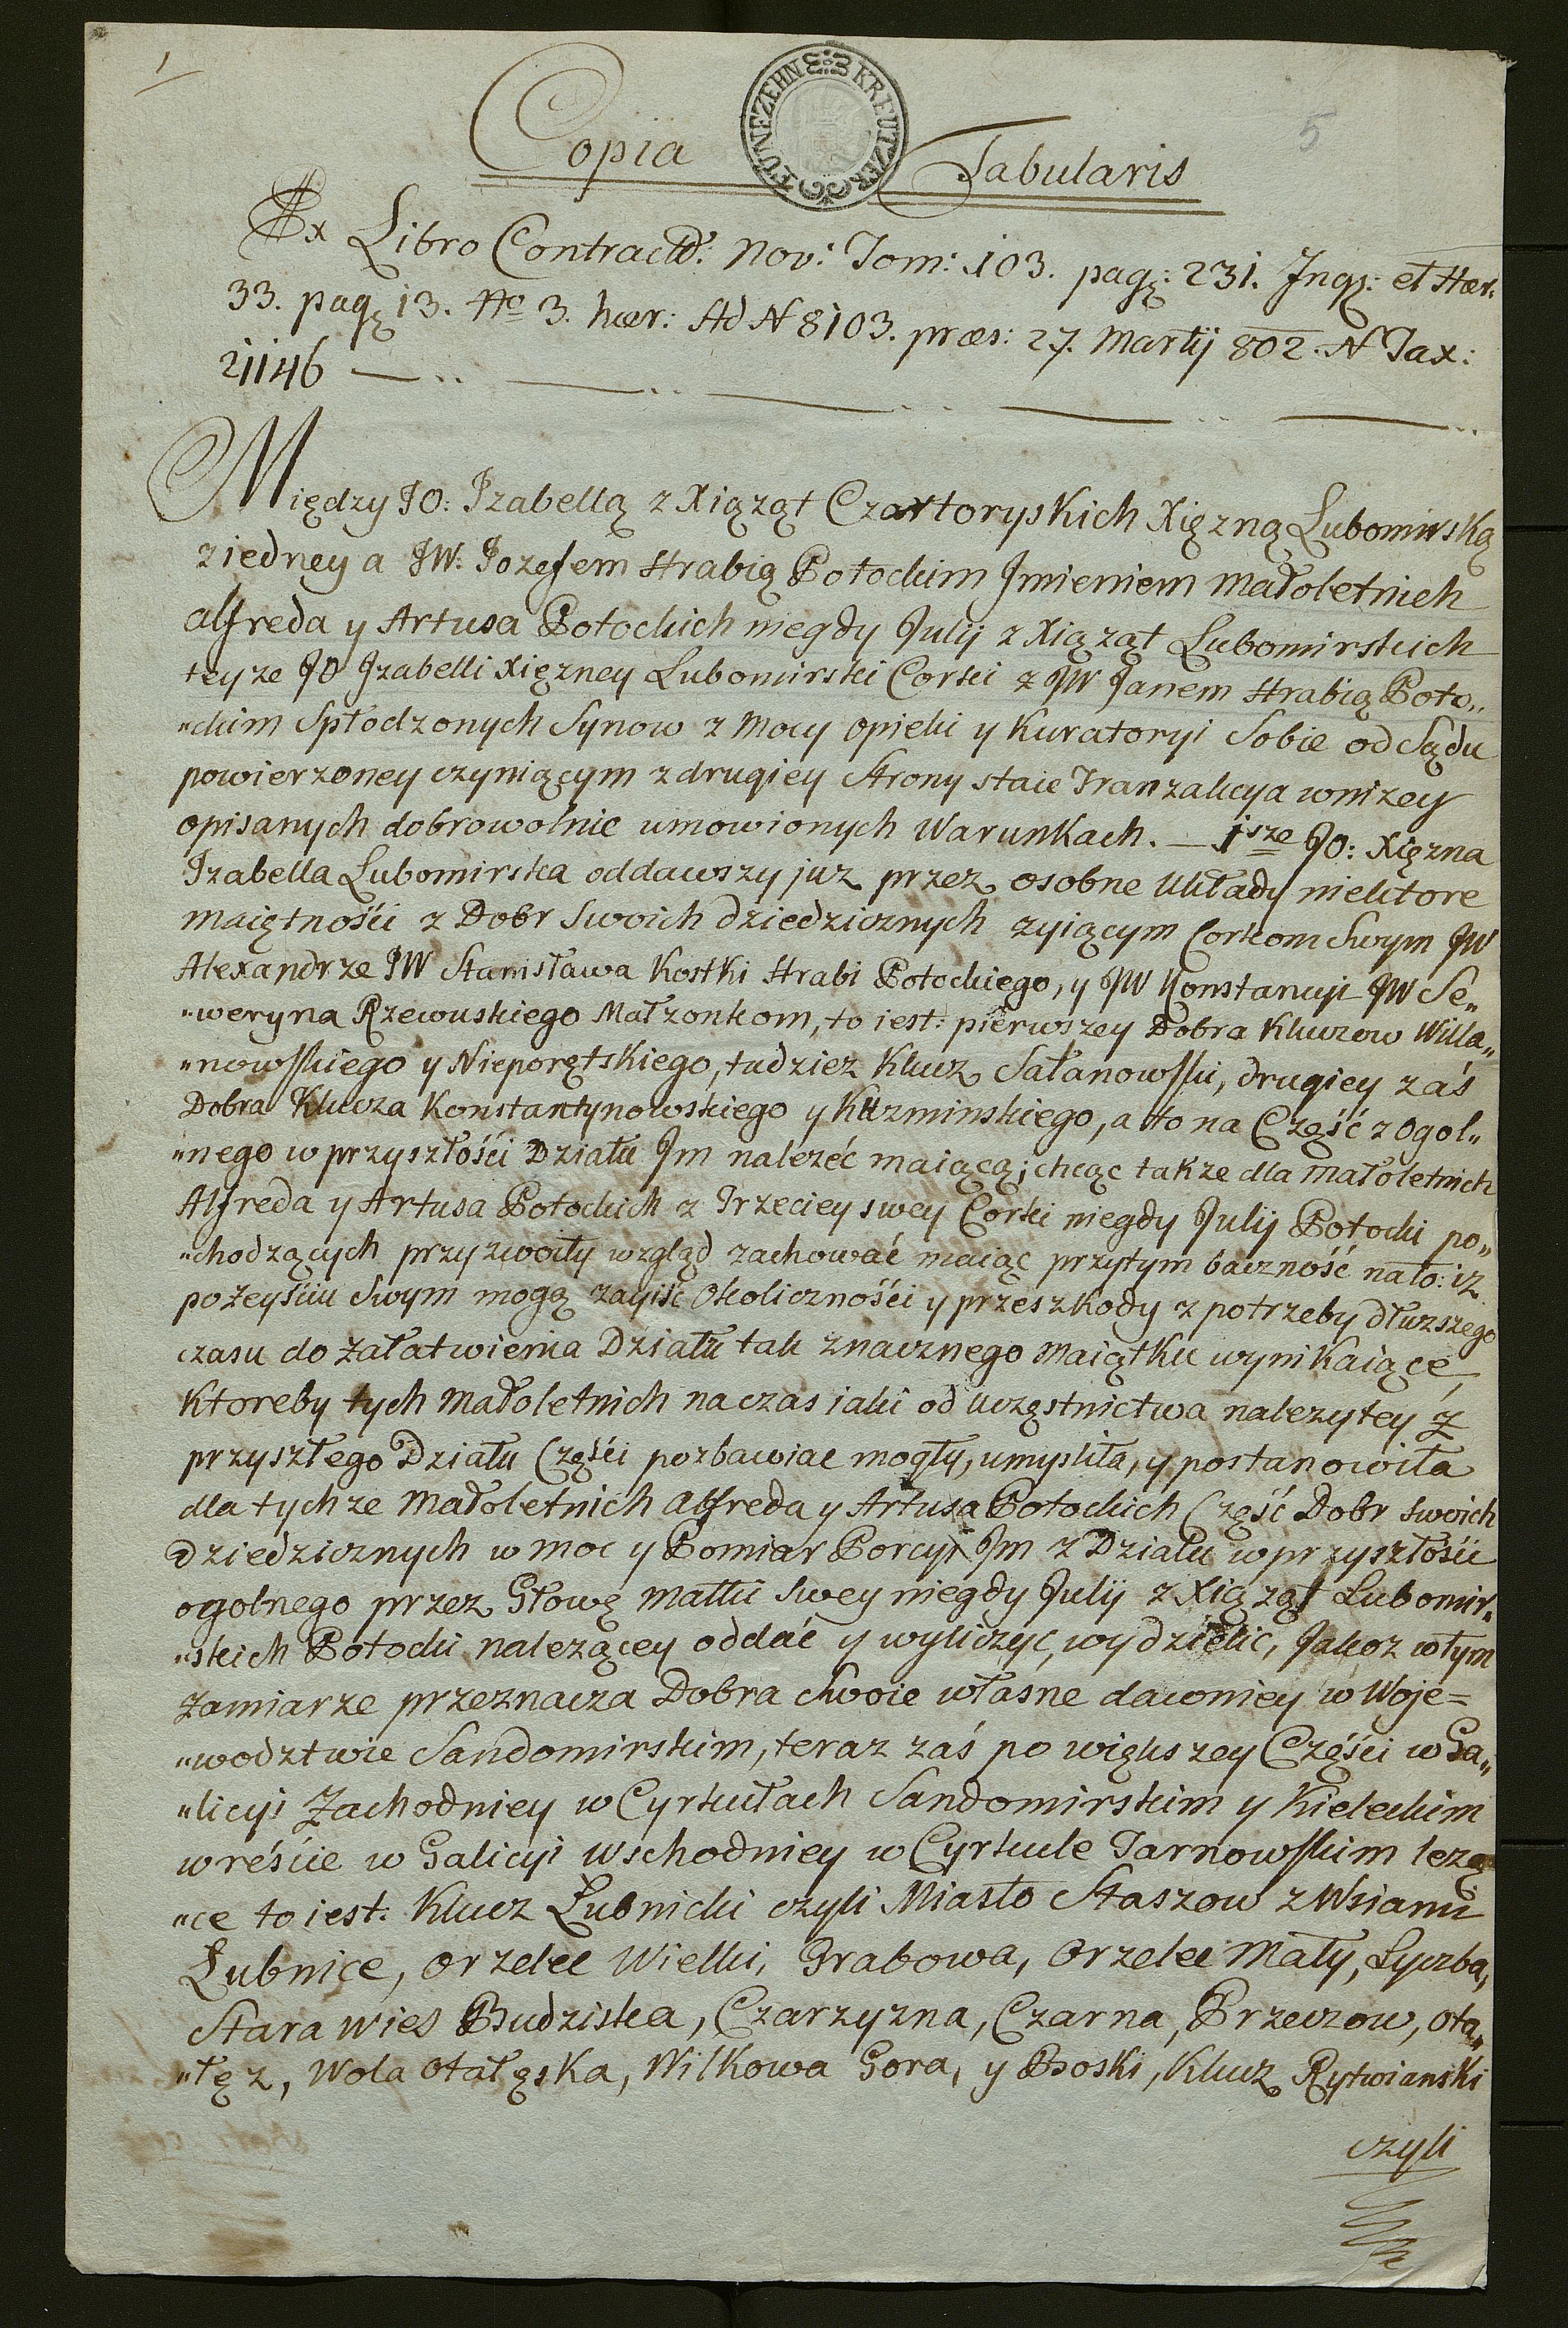 1
5
FUNFZEHN KREUTZER
Copia Tabularis
Ex Libro Contractt: Nov: Tom: 103. pag: 231. Ingr: et Haer:
33. pag 13. No 3. haer: Ad N 8103. praes: 27. Martij 802. N Tax:
21146 — .. — .. — .. — .. — ..
Między JO: Izabellą z Xiążąt Czartoryskich Xięzną Lubomirską
z iedney a JW: Jozefem Hrabią Potockim Jmieniem małoletnich
alfreda y Artusa Potockich niegdy Julij z Xiąząt Lubomirskich
teyze JO Izabelli Xięzney Lubomirski Corki z JW Janem Hrabią Poto„
„ckim Spłodzonych Synow z Mocy opieki y Kuratoryi Sobie od Sądu
powierzoney czyniącym z drugiey Strony staie Tranzakcya w nizey
opisanych dobrowolnie umowionych Warunkach. — 1sze JO: Xięzna
Izabella Lubomirska oddawszy juz przez osobne Układy niektore
maiętnośći z Dobr Swoich dziedzicznych zyiącym Corkom Swym JW
Alexandrze JW Stanisława Kostki Hrabi Potockiego, y JW Konstancyi JW Se„
„weryna Rzewuskiego Małzonkom, to iest: pierwszey Dobra Kluczow Willa„
„nowskiego y Nieporętskiego, tudziez Klucz Satanowski, drugiey zaś
Dobra Klucza Konstantynowskiego y Kuzminskiego, a to na Część z Ogol„
„nego w przyszłośći Działu Jm nalezeć maiącą; chcąc takze dla małoletnich
Alfreda y Artusa Potockich z Trzeciey swey Corki niegdy Julij Potocki po„
„chodzących przyzwoity wzgląd zachować maiąc przytym baczność na to: iz
po zeyśćiu Swym mogą zayiść Okolicznośći y przeszkody z potrzeby dłuzszego
czasu do załatwienia Działu tak znacznego maiątku wynikaiące,
Ktoreby tych małoletnich na czas iaki od uczęstnictwa nalezytey z
przyszłego Działu Częśći pozbawiac mogły, umysliła, y postanowiła
dla tychze małoletnich alfreda y Artusa Potockich Część Dobr swoich
Dziedzicznych w moc y Pomiar Porcyi Jm z Działu w przyszłośći
ogolnego przez Głowę matki swey niegdy Julij z Xiąząt Lubomir„
„skich Potocki nalezącey oddać y wyliczyć, wydzielic, Jakoz w tym
zamiarze przeznacza Dobra Swoie własne dawniey w Woje=
„wodztwie Sandomirskim, teraz zaś po większey Częśći w Ga„
„licyi Zachodniey w Cyrkułach Sandomirskim y Kieleckim
wreśćie w Galicyi Wschodniey w Cyrkule Tarnowskim lezą
„ce to iest: Klucz Łubnicki czyli Miasto Staszow z Wsiami
Łubnice, Orzelec Wielki, Grabowa, Orzelec Mały, Łyczba,
Stara wies Budziska, Czarzyzna, Czarna, Przeczow, Ota„
„łęz, Wola Otałęska, Wilkowa Gora, y Boski, Klucz Rytwianski
czyli